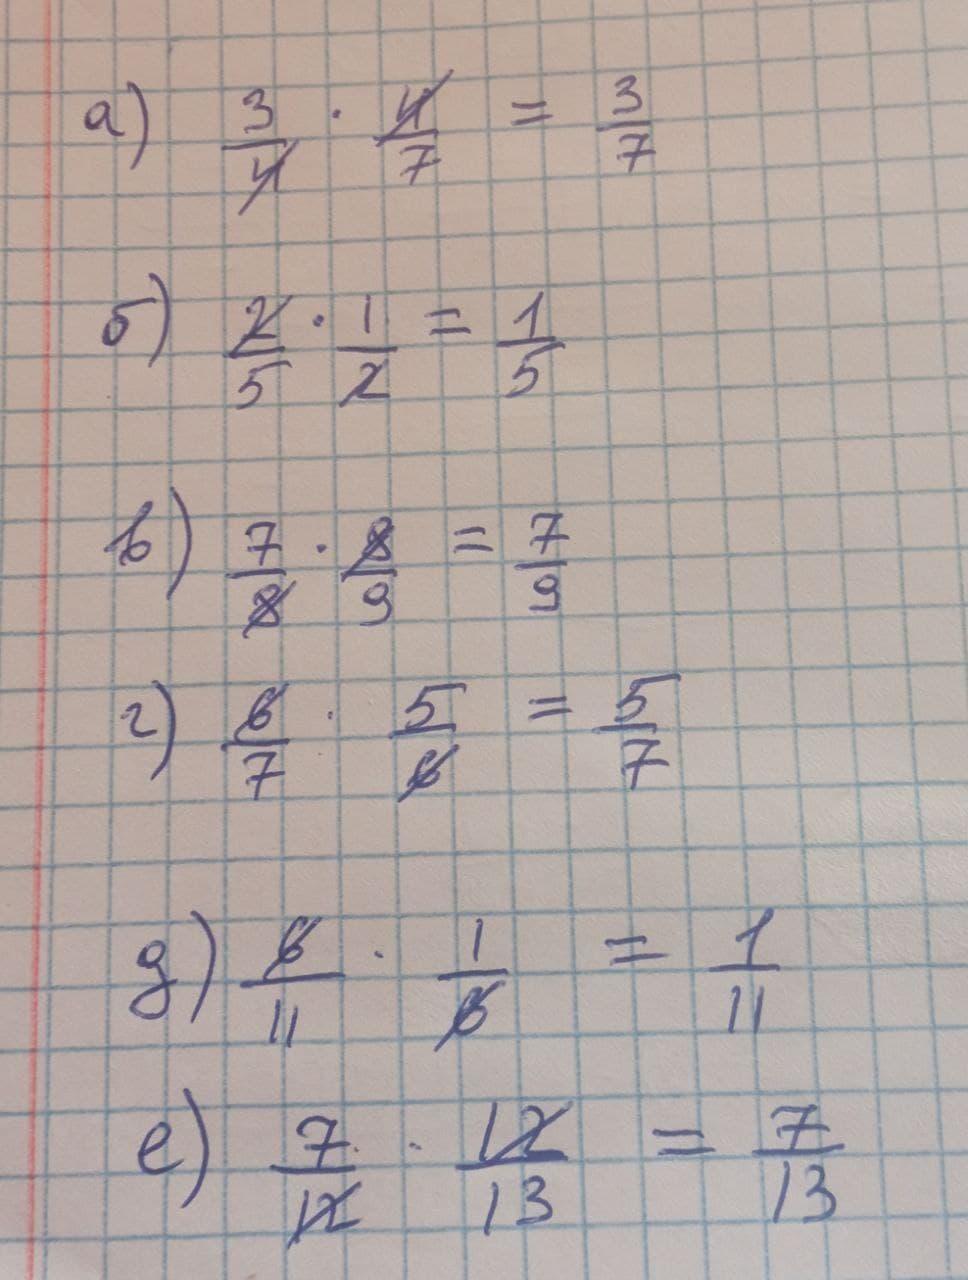 а) 3/4 · 4/7 = 3/7
б) 2/5 · 1/2 = 1/5
в) 7/8 · 8/9 = 7/9
г) 6/7 · 5/6 = 5/7
д) 6/11 · 1/6 = 1/11
е) 7/12 · 12/13 = 7/13